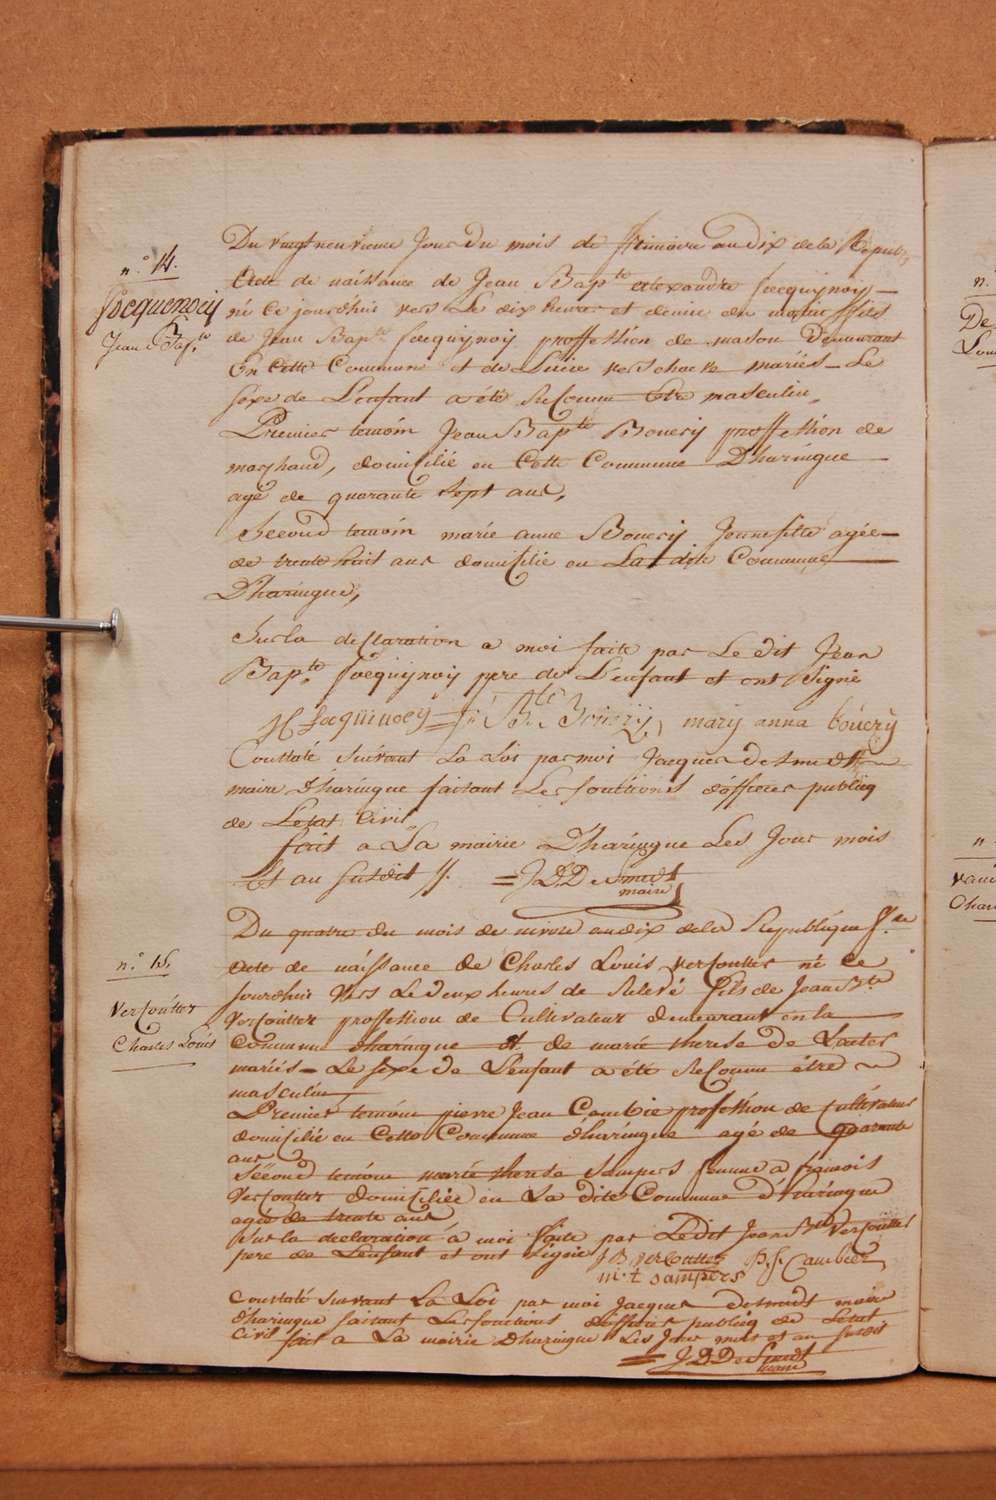 n.° 14.
Jocquenoiy
Jean Bap.te
Du vingt neuvieme Jour du mois de frimaire an dix de la Republ
Acte de naissance de Jean Bap.te alexandre Jocquynoy
né Ce jourdhui vers Le dix heures et demie du matin fils
de Jean Bap.te Jocquynoy proffession de mason Demeurant
En Cette Commune et de Lucie verschaeve mariés Le
sexe de L'enfant a été reconnu etre masculin.
Premier temoin Jean Bap.te Bouery proffession de
marchand, domicilié en Cette Commune D'haringue
agé de quarante sept ans,
Second temoin marie anne Bouery Jeune fille agée
de trente huit ans domicilié en La dite Commune
D'haringue,
Sur la declaration a moi faite par Le dit Jean
Bap.te Jocquynoy pere de L'enfant et ont Signé
Jocquinoey J: B.te Bouery, marij anna bouery
Constaté Suivant La Loi par moi Jacques Desmedt
maire d'haringue faisant Les fonctions d'officier publicq
de Letat Civil
fait a La mairie D'haringue Les Jour mois
Et an susdit //. = J.D. DeSmedt
maire
n.° 15.
Vercoutter
Charles Louis
Du quatre du mois de nivose an dix dela Republique f.se
Acte de naissance de Charles Louis vercoutter né Ce
Jourdhui vers Le deux heures de Relevé fils de Jean B.te
Vercoutter proffession de Cultivateur demeurant en la
Commune d'haringue et de marie therese de
mariés Le sexe de L'enfant a été Reconnu être
masculin
Premier temoin pierre Jean Cambie profession de Cultivateur
domicilié en Cette Commune d'haringue agé de quarante
ans
Sécond temoin marie therese Sampers femme a francois
Vercoutter domiciliée en La dite Commune d'haringue
agée de trente ans
Sur la declaration à moi faite par Le dit Jean B.te Vercoutter
pere de L'enfant et ont Signé J B vercoutter P. J. Cambier
m. t sampers
Constaté Suivant La Loi par moi Jacques Desmedt maire
d'haringue faisant Les fonctions d'officier publicq de Letat
Civil fait a La mairie D'haringue Les Jour mois et an susdit
= J. D. DeSmedt
maire
n.
De
Loui
n
vand
Char